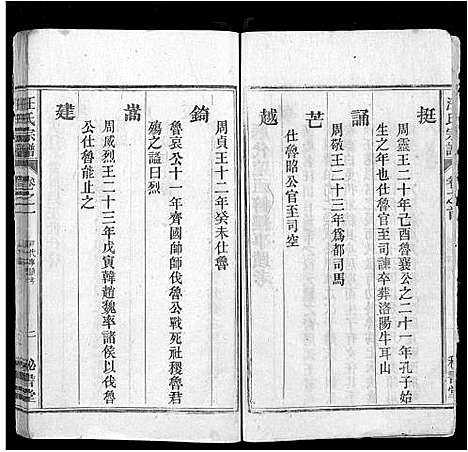 汪氏宗譜
卷之首
挺
周靈王二十年己酉魯襄公之二十一年孔子始
生之年也仕魯官至司諫卒葬洛陽牛耳山
誦
周敬王二十三年為都司馬
芒
仕魯昭公官至司空
越
周貞王十二年癸未仕魯
錡
魯哀公十一年齊國師師伐魯公戰死社稷魯君
殤之謚曰烈
嵩
周威烈王二十三年戊寅韓趙魏率諸侯以伐魯
公仕魯能止之
建
汪氏宗譜
卷之
二